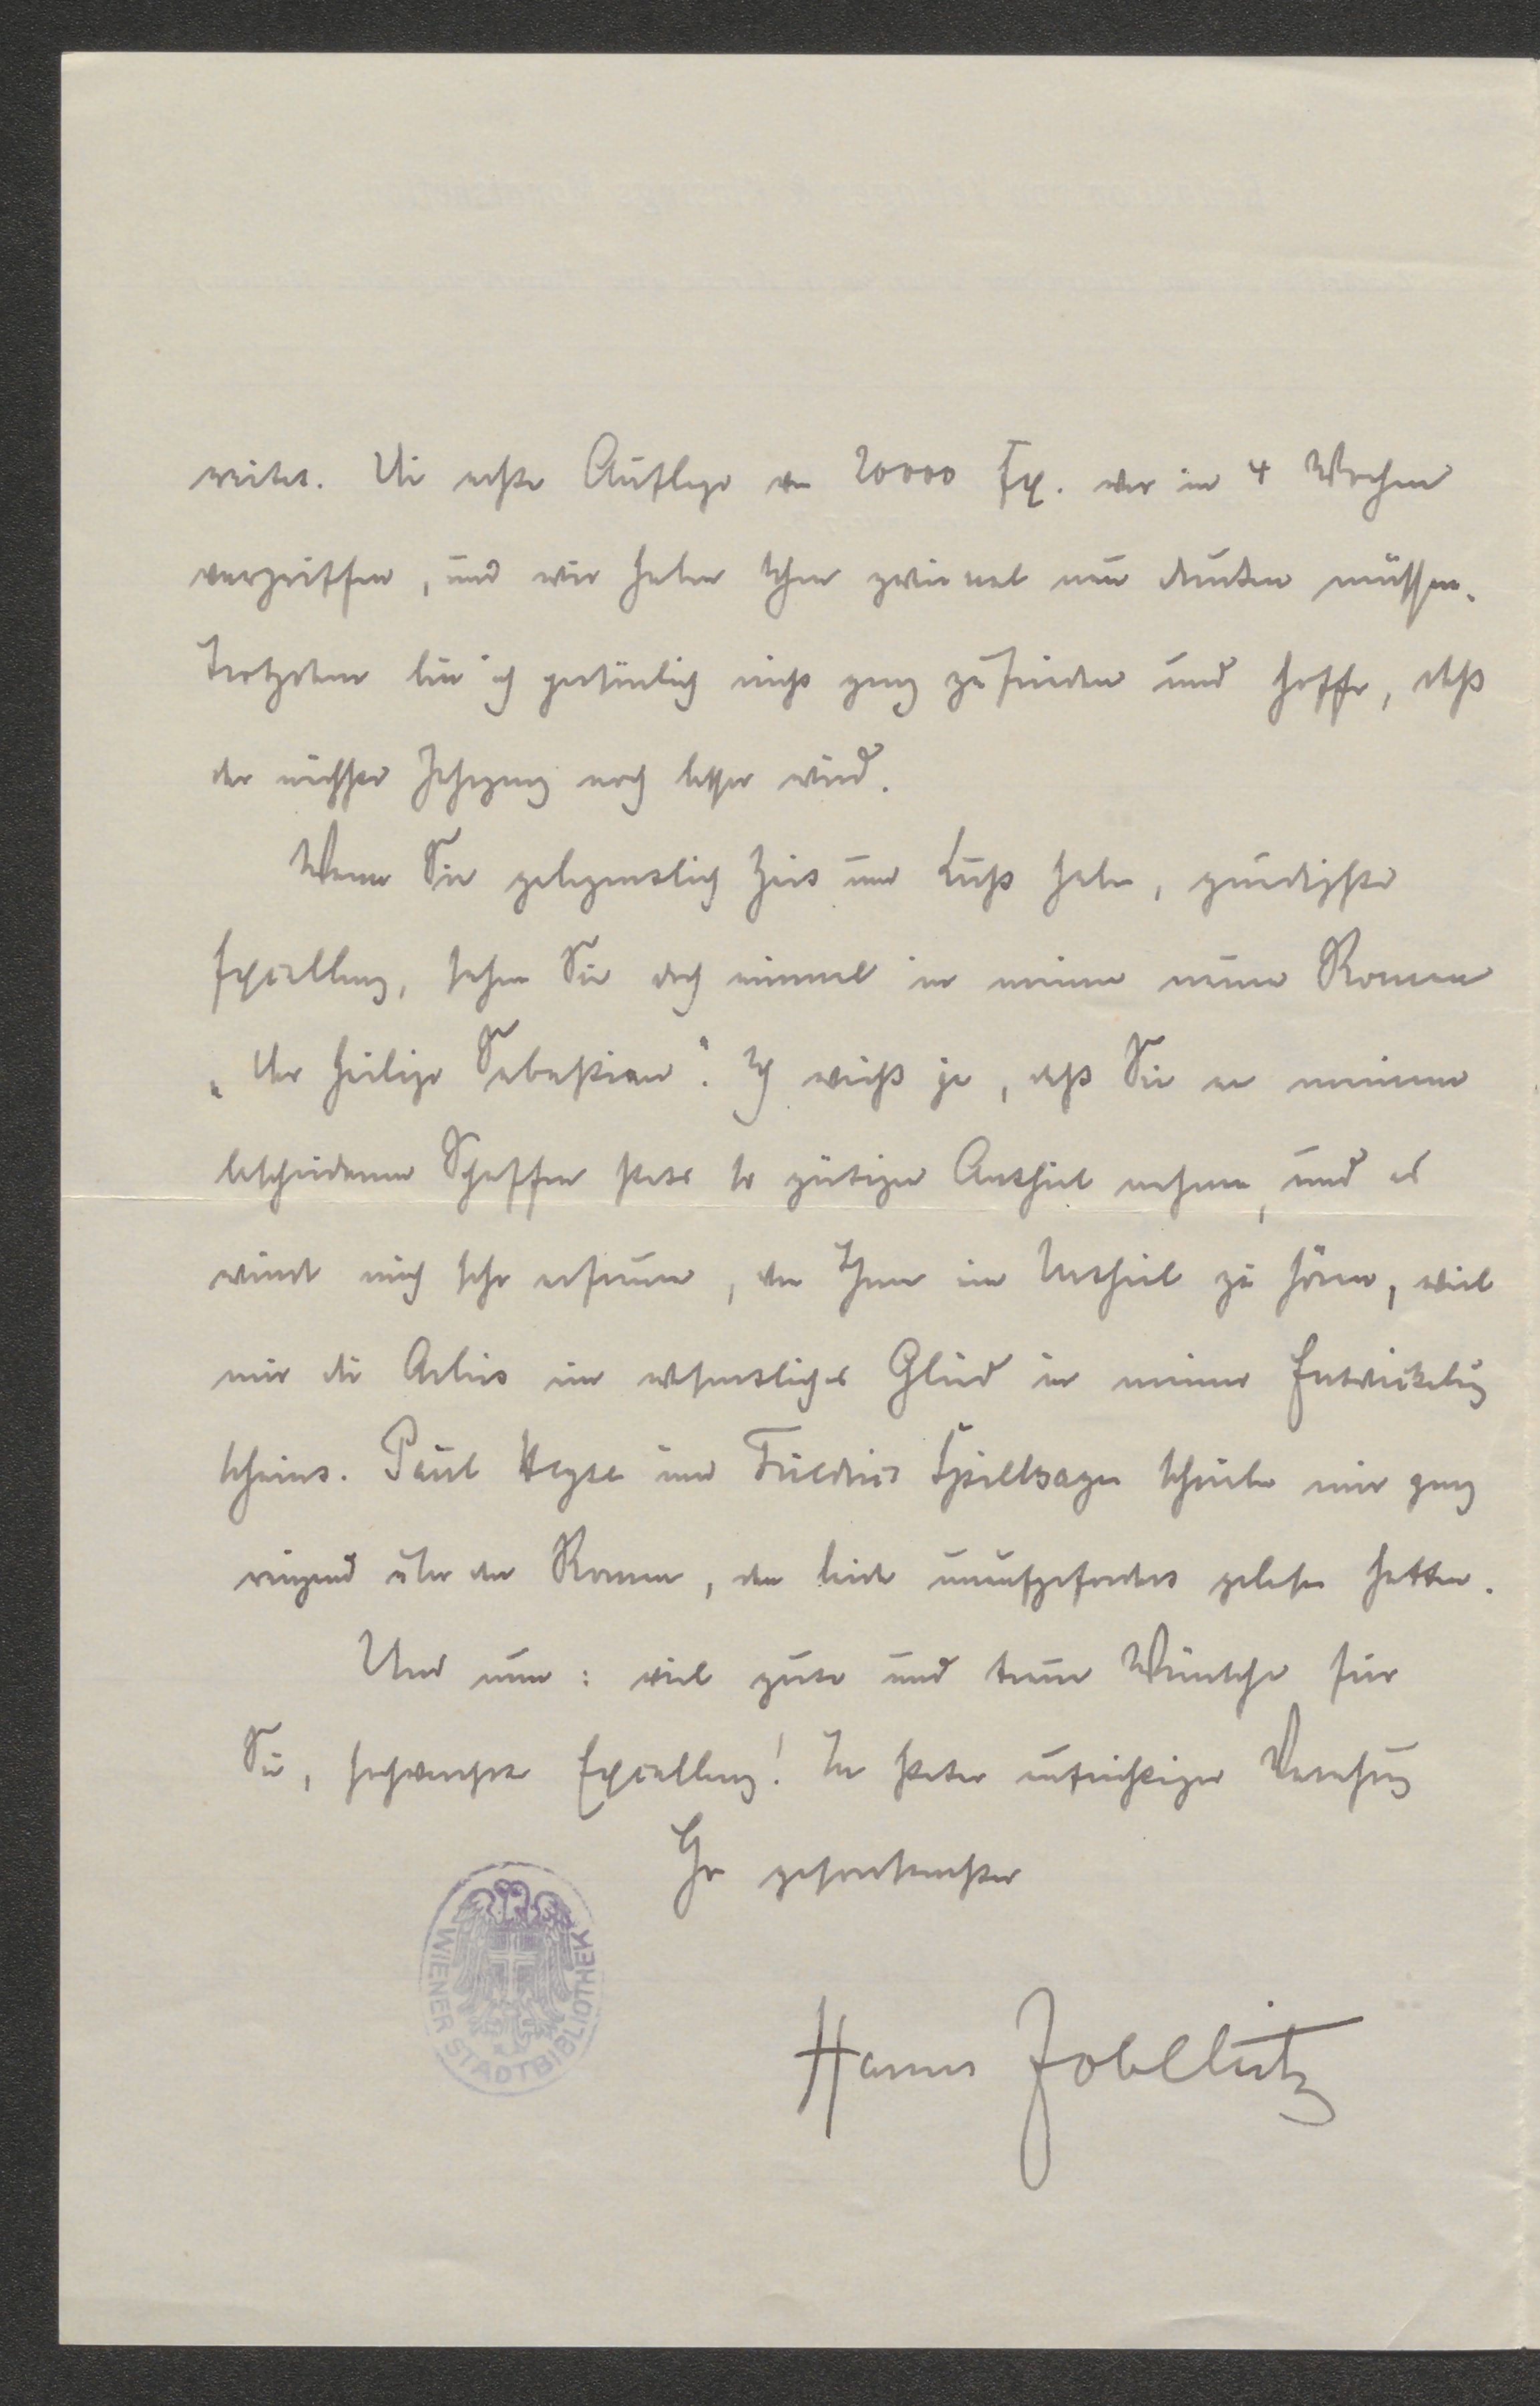 weiter. Die erste Auflage von 20000 Ex. war in 4 Wochen
vergriffen, und wir haben schon zweimal neu drucken müssen.
Trotzdem bin ich persönlich nicht ganz zufrieden und hoffe, daß
der nächste Jahrgang noch besser wird.
Wenn Sie gelegentlich Zeit und Lust haben, gnädigste
Excellenz, sehen Sie doch einmal in meinen neuen Roman
„Der heilige Sebastian". Ich weiß ja, daß Sie an meinem
bescheidenen Schaffen stets so gütigen Antheil nehmen, und es
würde mich sehr erfreuen, von Ihnen ein Urtheil zu hören, weil
mir die Arbeit ein wesentliches Glied in meiner Entwickelung
scheint. Paul Heyse und Friedrich Spielhagen schrieben mir ganz
reizend über den Roman, den beide unaufgefordert gelesen hatten.
Und nun: viel gute und treue Wünsche für
Sie, hochverehrte Excellenz! In steter aufrichtiger Verehrung
Ihr gehorsamster
Hanns Zobeltitz
WIENER STADTBIBLIOTHEK